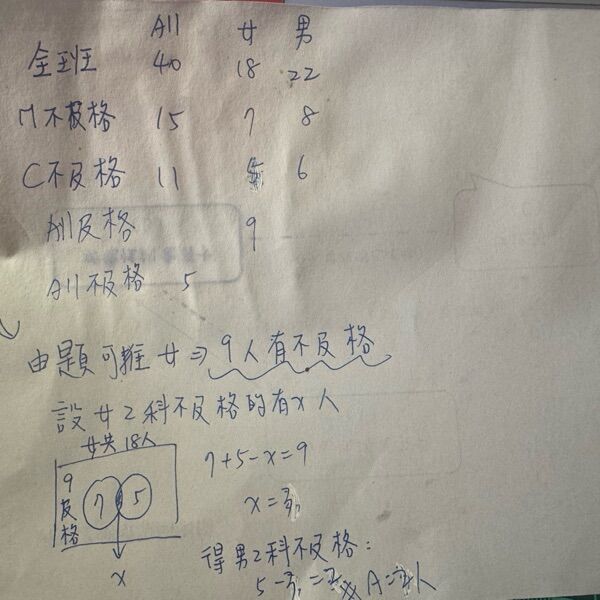 All 女 男
全班 40 18 22
M不及格 15 7 8
C不及格 11 5 6
All及格 9
All不及格 5
由題可推女⇒9人有不及格
設女2科不及格的有x人
女共18人
9及格
7 5
x
7+5-x=9
x=3
得男2科不及格:
5-3=2 A=2人